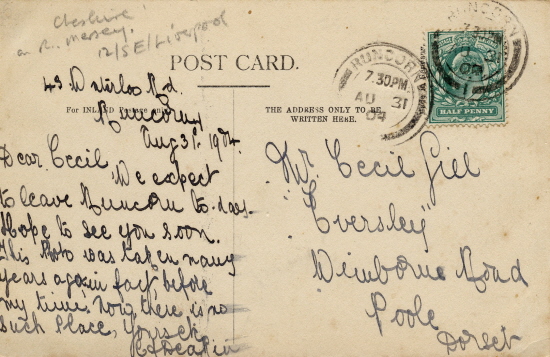 Cheshire
on R. Mersey.
12/S E/Liverpool
POST CARD.
RUNCORN
7.30PM
AU 31
04
RUNCORN
HALF PENNY
For INLAND Postage only
THE ADDRESS ONLY TO BE
WRITTEN HERE.
43 Waterloo Rd.
Runcorn
Aug 31. 1904.
Dear Cecil
We expect
to leave Runcorn to-day.
Hope to see you soon.
This Photo was taken many
years again fact before
my time. Now there is no
such Place, Yours etc
Mr. Cecil Gill
"Eversley"
Wimborne Road
Poole
Dorset